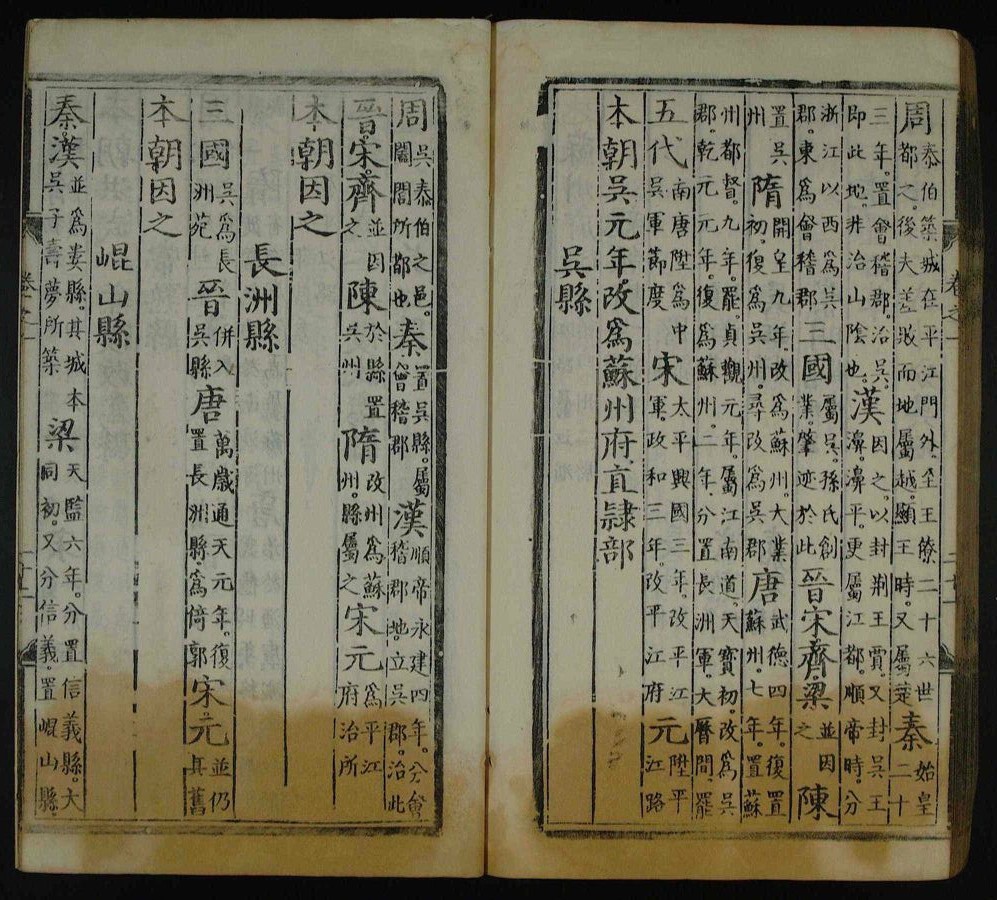 周泰伯築城在平江門外。至王僚二十六世都之。後夫差敗而地屬越。顯王時。又屬楚秦始皇二十
三年。置會稽郡。治吳。即此地。非治山陰也。漢因之。以封荆王賈。又封吳王濞。濞平。更屬江都。順帝時。分
浙江以西爲吳郡。東爲會稽郡三國屬吳。孫氏創業。肇迹於此晉宋齊梁並因之陳
置吳州隋開皇九年改爲蘇州。大業初。復爲吳州。尋改爲吳郡唐武德四年。復置蘇州。七年。置蘇
州都督。九年。罷。貞觀元年。屬江南道。天寶初。改爲吳郡。乾元元年。復爲蘇州。二年。分置長洲軍。大曆間。罷
五代南唐陞爲中吳軍節度宋太平興國三年。改平江軍。政和三年。改平江府元陞平江路
本朝吳元年改爲蘇州府直隸部
吳縣
周吳泰伯之邑。闔閭所都也。秦置吳縣。屬會稽郡漢順帝永建四年。分會稽郡地。立吳郡。治此
晉宋齊並因之陳於縣置吳州隋改州爲蘇州。縣屬之宋元爲平江府治所
本朝因之
長洲縣
三國吳爲長洲苑晉併入吳縣唐萬歲通天元年。復置長洲縣。爲倚郭宋元並仍其舊
本朝因之
崐山縣
秦漢並爲婁縣。其城本吳子壽夢所築梁天監六年。分置信義縣。大同初。又分信義。置崐山縣。